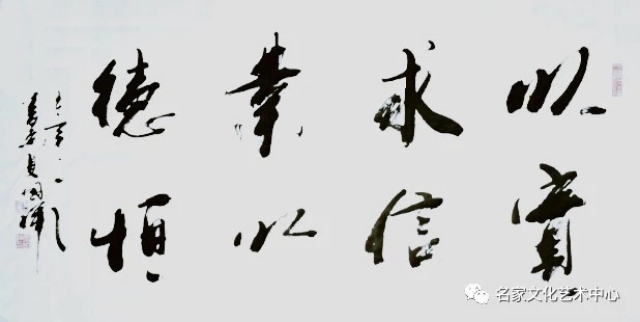 以實
求信
業以
德恒
名家文化艺术中心